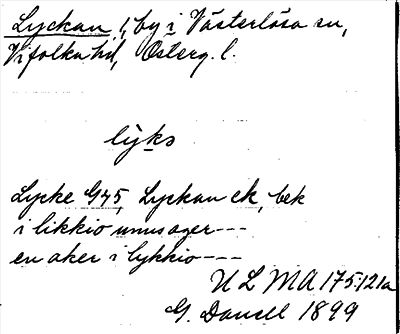 Lyckan, by i Västerlösa sn,
Vifolka hd, Österg. l.
lyks
Lycke G45, Lyckan ek, bek
i likkio unus ager---
en aker i lykkio---
ULMA 175:121a
G. Danell 1899